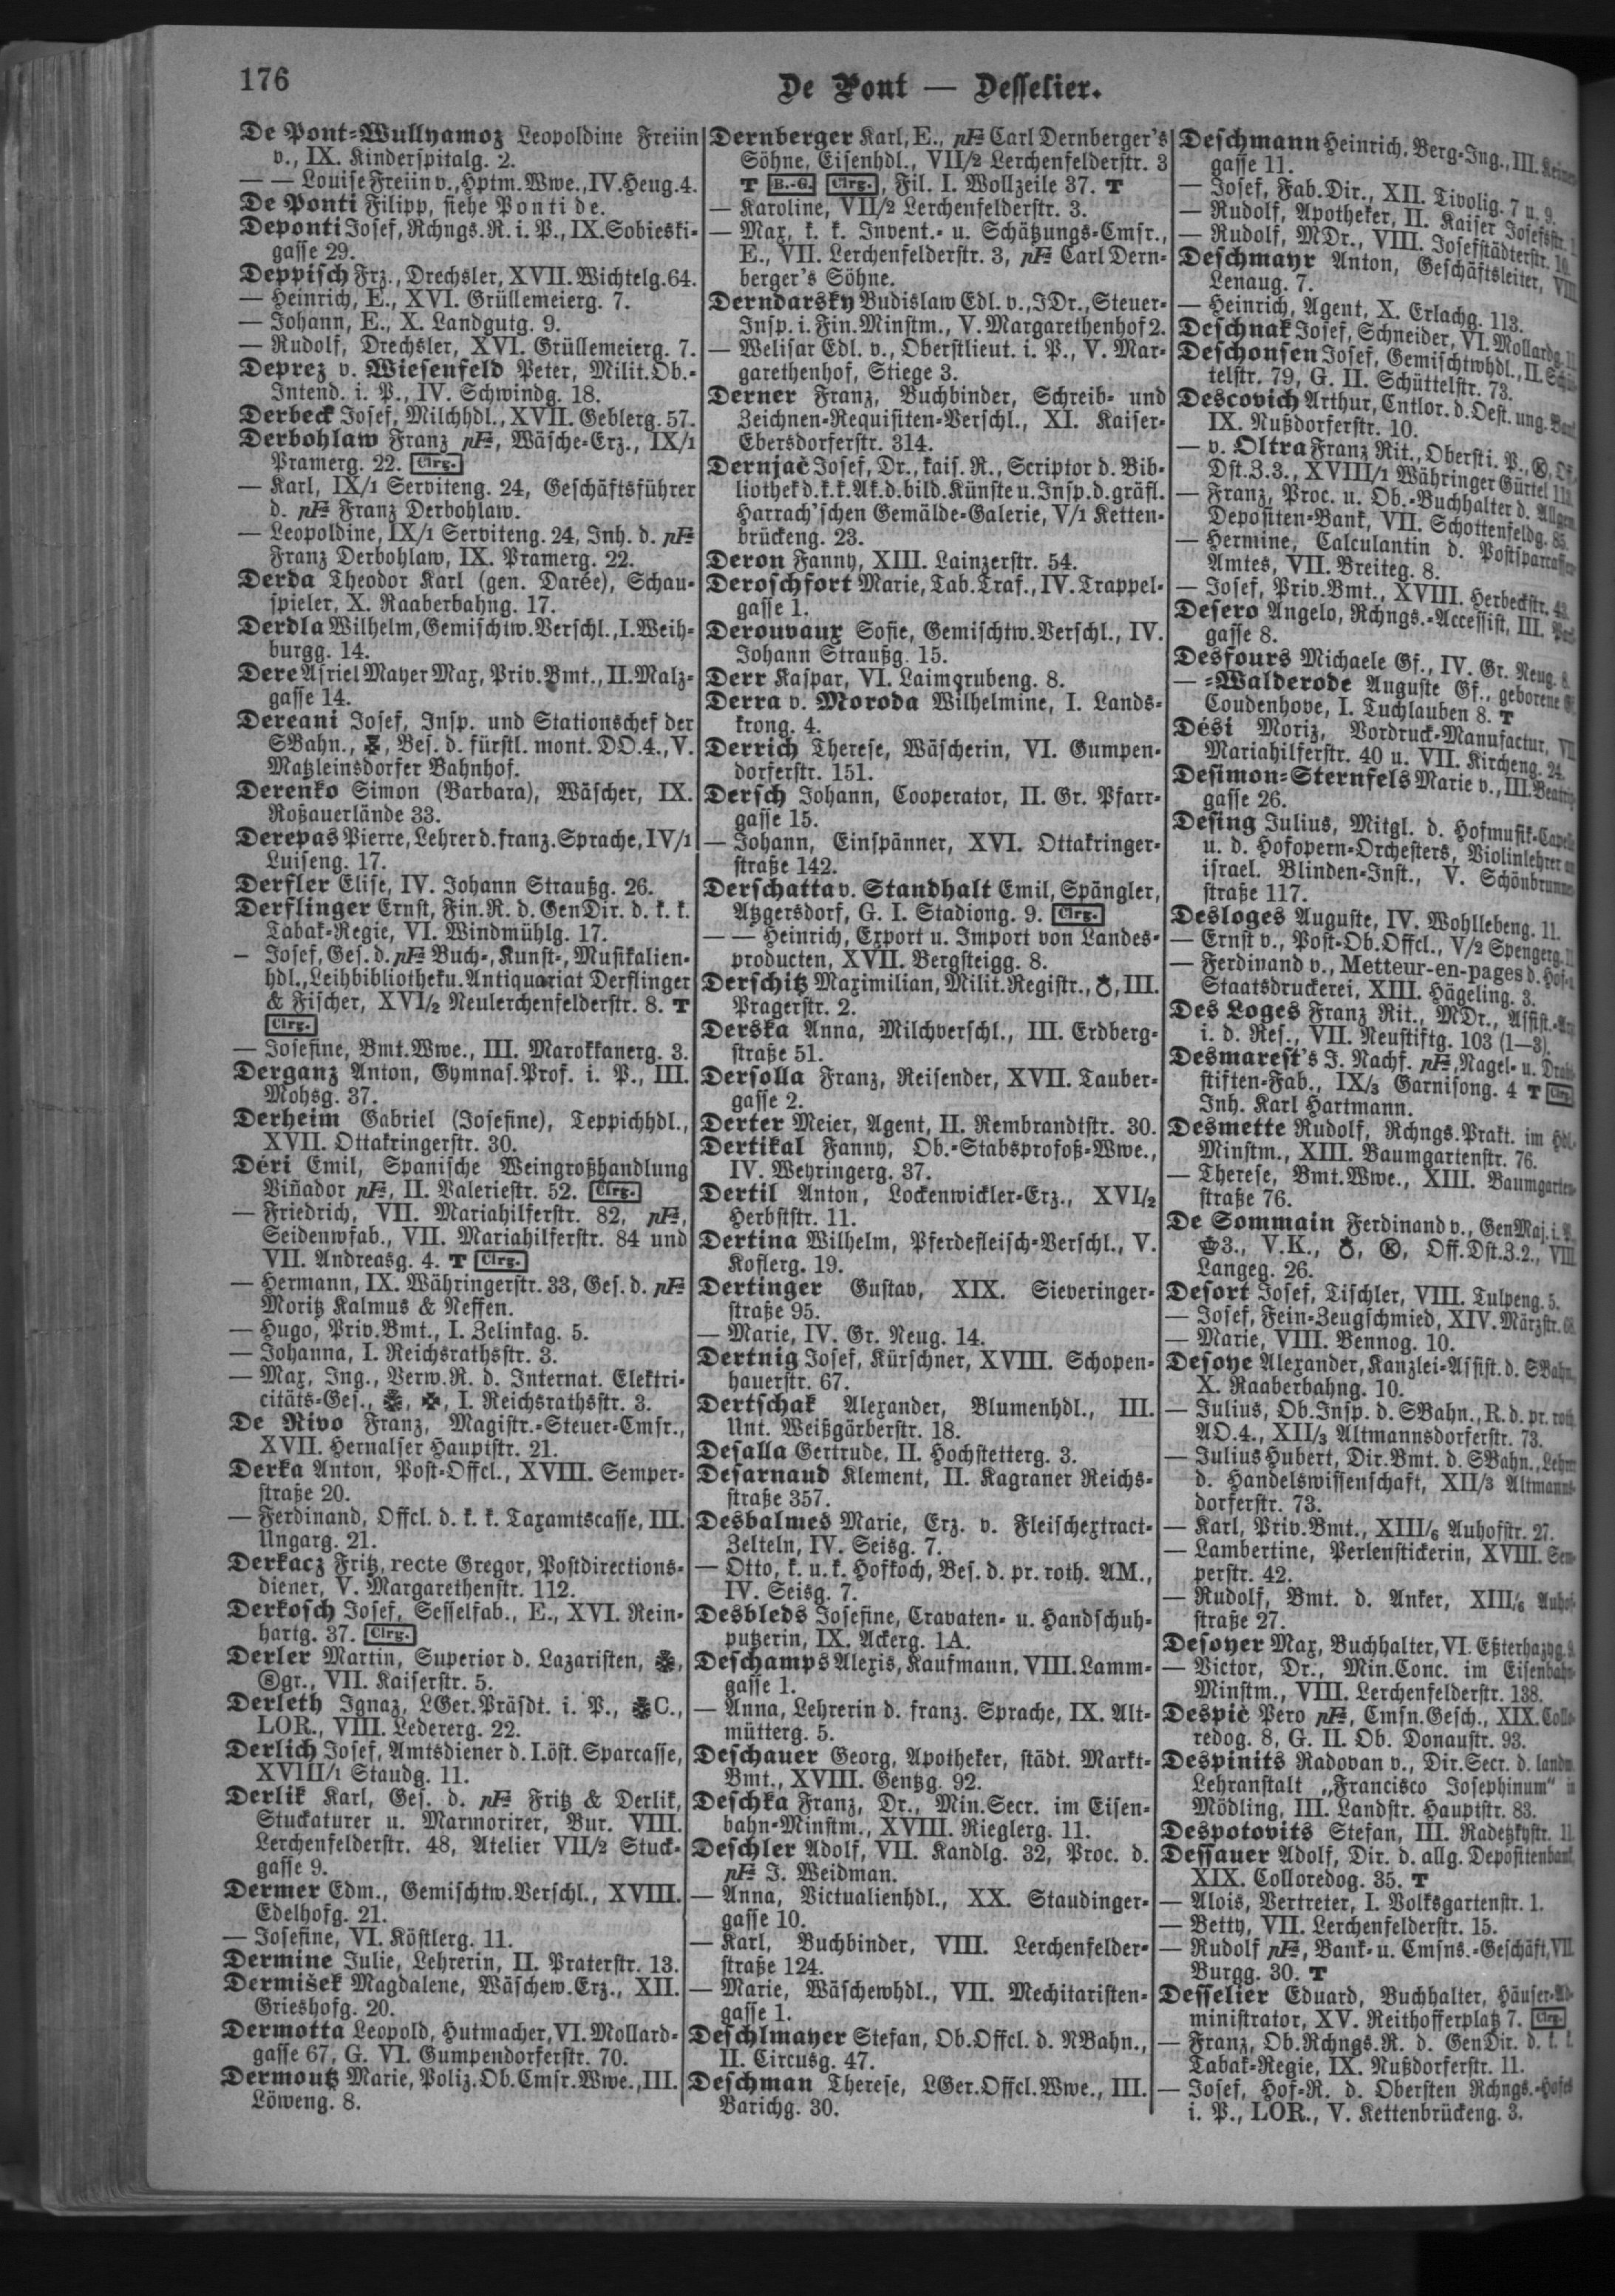 176
De Pont — Desselier.
De Pont-Wullyamoz Leopoldine Freiin
v., IX. Kinderspitalg. 2.
— — Louise Freiin v., Hptm. Wwe., IV. Heug. 4.
De Ponti Filipp, siehe Ponti de.
Deponti Josef, Rchngs. R. i. P., IX. Sobieski-
gasse 29.
Deppisch Frz., Drechsler, XVII. Wichtelg. 64.
— Heinrich, E., XVI. Grüllemeierg. 7.
— Johann, E., X. Landgutg. 9.
— Rudolf, Drechsler, XVI. Grüllemeierg. 7.
Deprez v. Wiesenfeld Peter, Milit. Ob.-
Intend. i. P., IV. Schwindg. 18.
Derbeck Josef, Milchhdl., XVII. Geblerg. 57.
Derbohlaw Franz pF, Wäsche-Erz., IX/1
Pramerg. 22. Clrg.
— Karl, IX/1 Serviteng. 24, Geschäftsführer
d. pF Franz Derbohlaw.
— Leopoldine, IX/1 Serviteng. 24, Inh. d. pF
Franz Derbohlaw, IX. Pramerg. 22.
Derda Theodor Karl (gen. Darée), Schau-
spieler, X. Raaberbahng. 17.
Derdla Wilhelm, Gemischtw. Verschl., I. Weih-
burgg. 14.
Dere Asriel Mayer Max, Priv. Bmt., II. Malz-
gasse 14.
Dereani Josef, Insp. und Stationschef der
SBahn., Bes. d. fürstl. mont. DO. 4., V.
Matzleinsdorfer Bahnhof.
Derenko Simon (Barbara), Wäscher, IX.
Roßauerlände 33.
Derepas Pierre, Lehrer d. franz. Sprache, IV/1
Luiseng. 17.
Derfler Elise, IV. Johann Straußg. 26.
Derflinger Ernst, Fin. R. d. GenDir. d. k. k.
Tabak-Regie, VI. Windmühlg. 17.
— Josef, Ges. d. pF Buch-, Kunst-, Musikalien-
hdl., Leihbibliothek u. Antiquariat Derflinger
& Fischer, XVI/2 Neulerchenfelderstr. 8. T
Clrg.
— Josefine, Bmt. Wwe., III. Marokkanerg. 3.
Derganz Anton, Gymnas. Prof. i. P., III.
Mohsg. 37.
Derheim Gabriel (Josefine), Teppichhdl.,
XVII. Ottakringerstr. 30.
Déri Emil, Spanische Weingroßhandlung
Viñador pF, II. Valeriestr. 52. Clrg.
— Friedrich, VII. Mariahilferstr. 82, pF,
Seidenwfab., VII. Mariahilferstr. 84 und
VII. Andreasg. 4. T Clrg.
— Hermann, IX. Währingerstr. 33, Ges. d. pF
Moritz Kalmus & Neffen.
— Hugo, Priv. Bmt., I. Zelinkag. 5.
— Johanna, I. Reichsrathsstr. 3.
— Max, Ing., Verw. R. d. Internat. Elektri-
citäts-Ges., I. Reichsrathsstr. 3.
De Rivo Franz, Magistr.-Steuer-Cmsr.,
XVII. Hernalser Hauptstr. 21.
Derka Anton, Post-Offcl., XVIII. Semper-
straße 20.
— Ferdinand, Offcl. d. k. k. Taxamtscasse, III.
Ungarg. 21.
Derkacz Fritz, recte Gregor, Postdirections-
diener, V. Margarethenstr. 112.
Derkosch Josef, Sesselfab., E., XVI. Rein-
hartg. 37. Clrg.
Derler Martin, Superior d. Lazaristen,
gr., VII. Kaiserstr. 5.
Derleth Ignaz, LGer. Präsdt. i. P., C.,
LOR., VIII. Ledererg. 22.
Derlich Josef, Amtsdiener d. I. öst. Sparcasse,
XVIII/1 Staudg. 11.
Derlik Karl, Ges. d. pF Fritz & Derlik,
Stuckaturer u. Marmorirer, Bur. VIII.
Lerchenfelderstr. 48, Atelier VII/2 Stuck-
gasse 9.
Dermer Edm., Gemischtw. Verschl., XVIII.
Edelhofg. 21.
— Josefine, VI. Köstlerg. 11.
Dermine Julie, Lehrerin, II. Praterstr. 13.
Dermišek Magdalene, Wäschew. Erz., XII.
Grieshofg. 20.
Dermotta Leopold, Hutmacher, VI. Mollard-
gasse 67, G. VI. Gumpendorferstr. 70.
Dermoutz Marie, Poliz. Ob. Cmsr. Wwe., III.
Löweng. 8.
Dernberger Karl, E., pF Carl Dernberger's
Söhne, Eisenhdl., VII/2 Lerchenfelderstr. 3
T B.-G. Clrg., Fil. I. Wollzeile 37. T
— Karoline, VII/2 Lerchenfelderstr. 3.
— Max, k. k. Invent.- u. Schätzungs-Cmsr.,
E., VII. Lerchenfelderstr. 3, pF Carl Dern-
berger's Söhne.
Derndarsky Budislaw Edl. v., JDr., Steuer-
Insp. i. Fin. Minstm., V. Margarethenhof 2.
— Welisar Edl. v., Oberstlieut. i. P., V. Mar-
garethenhof, Stiege 3.
Derner Franz, Buchbinder, Schreib- und
Zeichnen-Requisiten-Verschl., XI. Kaiser-
Ebersdorferstr. 314.
Dernjač Josef, Dr., kais. R., Scriptor d. Bib-
liothek d. k. k. Ak. d. bild. Künste u. Insp. d. gräfl.
Harrach'schen Gemälde-Galerie, V/1 Ketten-
brückeng. 23.
Deron Fanny, XIII. Lainzerstr. 54.
Deroschfort Marie, Tab. Traf., IV. Trappel-
gasse 1.
Derouvaux Sofie, Gemischtw. Verschl., IV.
Johann Straußg. 15.
Derr Kaspar, VI. Laimgrubeng. 8.
Derra v. Moroda Wilhelmine, I. Lands-
krong. 4.
Derrich Therese, Wäscherin, VI. Gumpen-
dorferstr. 151.
Dersch Johann, Cooperator, II. Gr. Pfarr-
gasse 15.
— Johann, Einspänner, XVI. Ottakringer-
straße 142.
Derschatta v. Standhalt Emil, Spängler,
Atzgersdorf, G. I. Stadiong. 9. Clrg.
— — Heinrich, Export u. Import von Landes-
producten, XVII. Bergsteigg. 8.
Derschitz Maximilian, Milit. Registr., III.
Pragerstr. 2.
Derska Anna, Milchverschl., III. Erdberg-
straße 51.
Dersolla Franz, Reisender, XVII. Tauber-
gasse 2.
Derter Meier, Agent, II. Rembrandtstr. 30.
Dertikal Fanny, Ob.-Stabsprofoß-Wwe.,
IV. Weyringerg. 37.
Dertil Anton, Lockenwickler-Erz., XVI/2
Herbststr. 11.
Dertina Wilhelm, Pferdefleisch-Verschl., V.
Koflerg. 19.
Dertinger Gustav, XIX. Sieveringer-
straße 95.
— Marie, IV. Gr. Neug. 14.
Dertnig Josef, Kürschner, XVIII. Schopen-
hauerstr. 67.
Dertschak Alexander, Blumenhdl., III.
Unt. Weißgärberstr. 18.
Desalla Gertrude, II. Hochstetterg. 3.
Desarnaud Klement, II. Kagraner Reichs-
straße 357.
Desbalmes Marie, Erz. v. Fleischextract-
Zelteln, IV. Seisg. 7.
— Otto, k. u. k. Hofkoch, Bes. d. pr. roth. AM.,
IV. Seisg. 7.
Desbleds Josefine, Cravaten- u. Handschuh-
putzerin, IX. Ackerg. 1A.
Deschamps Alexis, Kaufmann, VIII. Lamm-
gasse 1.
— Anna, Lehrerin d. franz. Sprache, IX. Alt-
mütterg. 5.
Deschauer Georg, Apotheker, städt. Markt-
Bmt., XVIII. Gentzg. 92.
Deschka Franz, Dr., Min. Secr. im Eisen-
bahn-Minstm., XVIII. Rieglerg. 11.
Deschler Adolf, VII. Kandlg. 32, Proc. d.
pF J. Weidman.
— Anna, Victualienhdl., XX. Staudinger-
gasse 10.
— Karl, Buchbinder, VIII. Lerchenfelder-
straße 124.
— Marie, Wäschewhdl., VII. Mechitaristen-
gasse 1.
Deschlmayer Stefan, Ob. Offcl. d. NBahn.,
II. Circusg. 47.
Deschman Therese, LGer. Offcl. Wwe., III.
Barichg. 30.
Deschmann Heinrich, Berg-Ing., III.
gasse 11.
— Josef, Fab. Dir., XII. Tivolig. 7 u. 9.
— Rudolf, Apotheker, II. Kaiser Josefsstr.
— Rudolf, MDr., VIII. Josefstädterstr.
Deschmayr Anton, Geschäftsleiter,
Lenaug. 7.
— Heinrich, Agent, X. Erlachg. 113.
Deschnak Josef, Schneider, VI. Mollardg.
Deschonsen Josef, Gemischtwhdl., II.
telstr. 79, G. II. Schüttelstr. 73.
Descovich Arthur, Cntlor. d. Oest. ung.
IX. Nußdorferstr. 10.
— v. Oltra Franz Rit., Oberst i. P.,
Dst. Z. 3., XVIII/1 Währinger Gürtel
— Franz, Proc. u. Ob.-Buchhalter d. Allgem.
Depositen-Bank, VII. Schottenfeldg. 85.
— Hermine, Calculantin d. Postsparcassen-
Amtes, VII. Breiteg. 8.
— Josef, Priv. Bmt., XVIII. Herbeckstr.
Desero Angelo, Rchngs.-Accessist, III.
gasse 8.
Desfours Michaele Gf., IV. Gr. Neug. 8.
— -Walderode Auguste Gf., geborene
Coudenhove, I. Tuchlauben 8. T
Dési Moriz, Vordruck-Manufactur,
Mariahilferstr. 40 u. VII. Kircheng. 24.
Desimon-Sternfels Marie v., III. Beatrix-
gasse 26.
Desing Julius, Mitgl. d. Hofmusik-Capelle
u. d. Hofopern-Orchesters, Violinlehrer
israel. Blinden-Inst., V. Schönbrunner-
straße 117.
Desloges Auguste, IV. Wohllebeng. 11.
— Ernst v., Post-Ob. Offcl., V/2 Spengerg.
— Ferdinand v., Metteur-en-pages d. Hof-
Staatsdruckerei, XIII. Hägeling. 3.
Des Loges Franz Rit., MDr., Assist.-
i. d. Res., VII. Neustiftg. 103 (1—3).
Desmarest's J. Nachf. pF, Nagel- u. Draht-
stiften-Fab., IX/3 Garnisong. 4 T Clrg.
Inh. Karl Hartmann.
Desmette Rudolf, Rchngs. Prakt. im Hdl.-
Minstm., XIII. Baumgartenstr. 76.
— Therese, Bmt. Wwe., XIII. Baumgarten-
straße 76.
De Sommain Ferdinand v., GenMaj. i. P.,
3., V. K., Off. Dst. Z. 2., VIII.
Langeg. 26.
Desort Josef, Tischler, VIII. Tulpeng. 5.
— Josef, Fein-Zeugschmied, XIV. Märzstr.
— Marie, VIII. Bennog. 10.
Desoye Alexander, Kanzlei-Assist. d. SBahn,
X. Raaberbahng. 10.
— Julius, Ob. Insp. d. SBahn., R. d. pr. roth.
AO. 4., XII/3 Altmannsdorferstr. 73.
— Julius Hubert, Dir. Bmt. d. SBahn., Lehrer
d. Handelswissenschaft, XII/3 Altmanns-
dorferstr. 73.
— Karl, Priv. Bmt., XIII/6 Auhofstr. 27.
— Lambertine, Perlenstickerin, XVIII. Sem-
perstr. 42.
— Rudolf, Bmt. d. Anker, XIII/6 Auhof-
straße 27.
Desoyer Max, Buchhalter, VI. Eßterhazyg.
— Victor, Dr., Min. Conc. im Eisenbahn-
Minstm., VIII. Lerchenfelderstr. 138.
Despić Pero pF, Cmsn. Gesch., XIX. Collo-
redog. 8, G. II. Ob. Donaustr. 93.
Despinits Radovan v., Dir. Secr. d. landw.
Lehranstalt „Francisco Josephinum" in
Mödling, III. Landstr. Hauptstr. 83.
Despotovits Stefan, III. Radetzkystr. 11.
Dessauer Adolf, Dir. d. allg. Depositenbank,
XIX. Colloredog. 35. T
— Alois, Vertreter, I. Volksgartenstr. 1.
— Betty, VII. Lerchenfelderstr. 15.
— Rudolf pF, Bank- u. Cmsns.-Geschäft, VII.
Burgg. 30. T
Desselier Eduard, Buchhalter, Häuser-Ad-
ministrator, XV. Reithofferplatz 7. Clrg.
— Franz, Ob. Rchngs. R. d. GenDir. d. k. k.
Tabak-Regie, IX. Nußdorferstr. 11.
— Josef, Hof-R. d. Obersten Rchngs.-Hofes
i. P., LOR., V. Kettenbrückeng. 3.